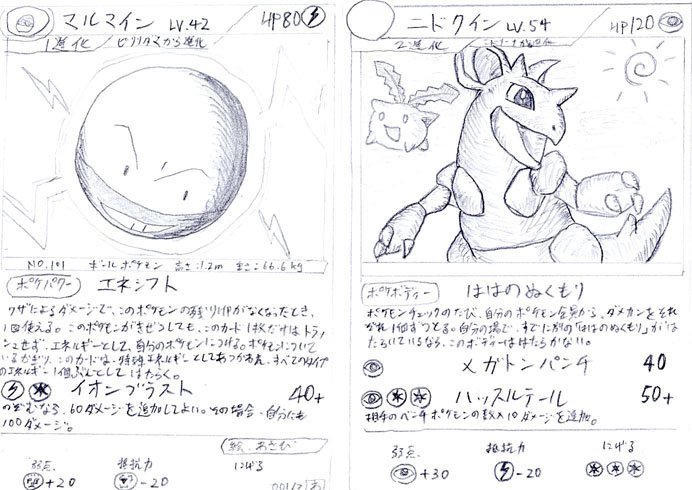 マルマイン LV.42 HP80
1進化 ビリリダマから進化
NO.101 ボールポケモン 高さ:1.2m 重さ:66.6kg
ポケパワー エネシフト
ワザによるダメージで、このポケモンの残りHPがなくなったとき、
1回使える。このポケモンがきぜつしても、このカード1枚だけはトラッ
シュせず、エネルギーとして、自分のポケモンにつける。ポケモンについて
いるかぎり、このカードは、特殊エネルギーとしてあつかわれ、すべてのタイプ
のエネルギー1個ぶんとしてはたらく。
イオンブラスト 40+
のぞむなら、60ダメージを追加してよい。その場合、自分にも
100ダメージ。
絵.あさひ
弱点 抵抗力 にげる
+20 -20
001/
ニドクイン LV.54 HP120
2進化
ポケボディー ははのぬくもり
ポケモンチェックのたび、自分のポケモン全員から、ダメカンをそれ
ぞれ1個ずつとる。自分の場で、すでに別の「ははのぬくもり」がは
たらいているなら、このボディーははたらかない。
メガトンパンチ 40
ハッスルテール 50+
相手のベンチポケモンの数×10ダメージを追加。
弱点 抵抗力 にげる
+30 -20